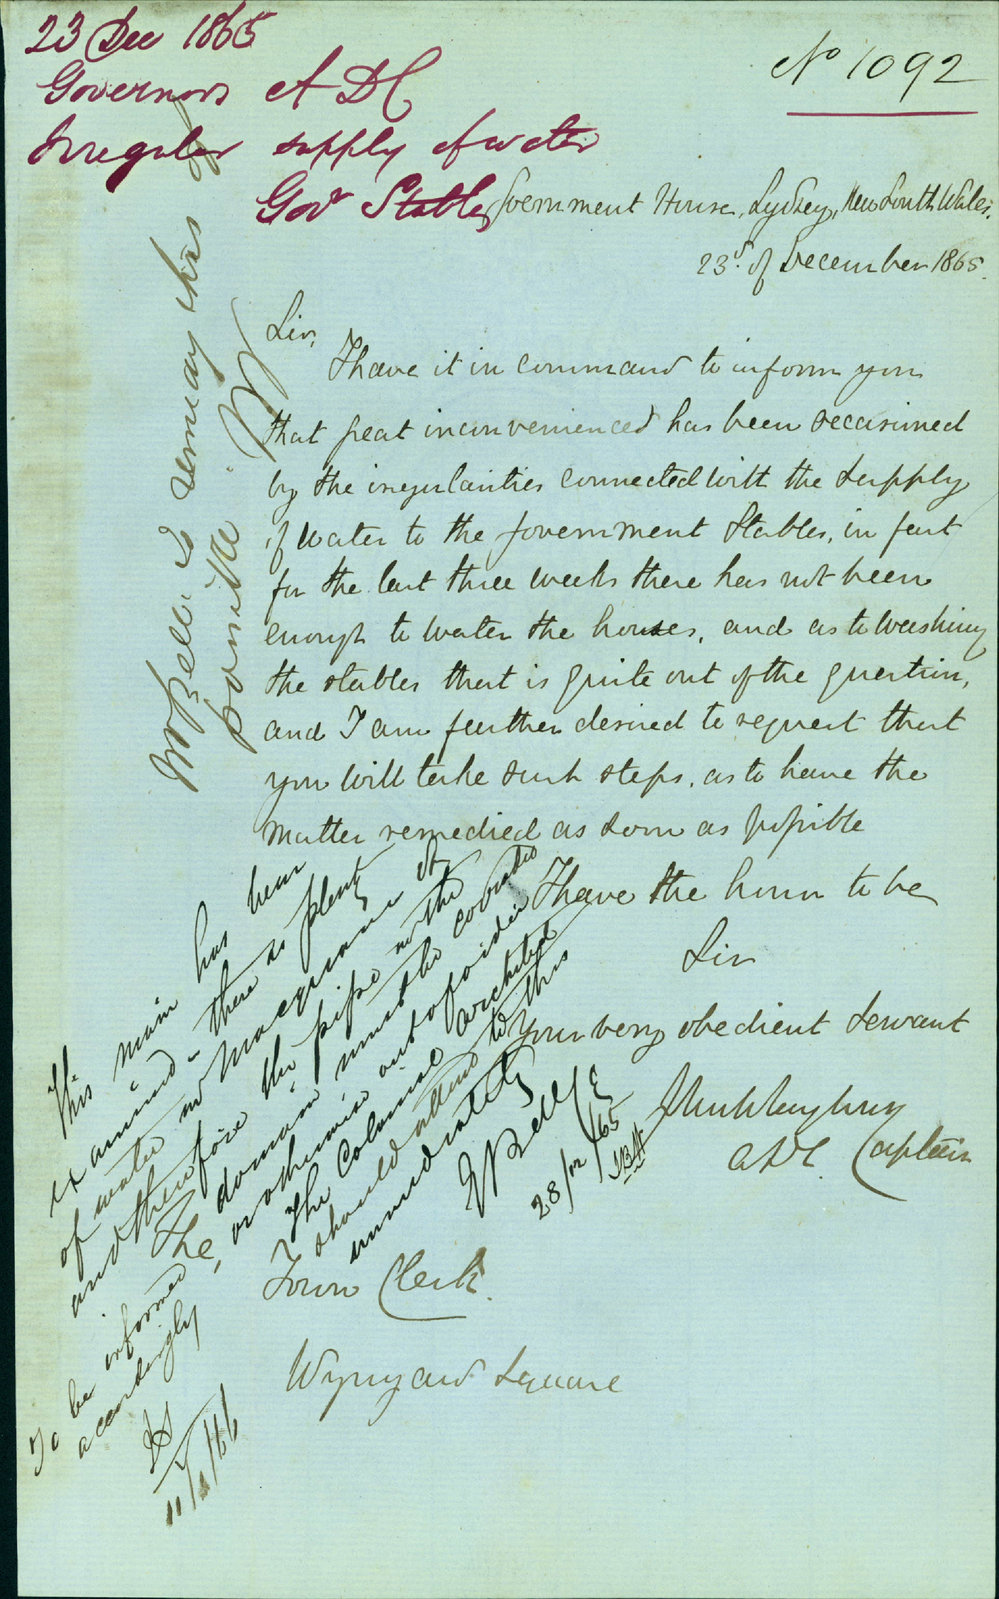 23 Dec 1865
Governors A D C
Irregular supply of water
Govr Stables
No 1092
Government House, Sydney, New South Wales.
23d. of December 1865.
Sir,
I have it in command to inform you
that great inconvenienced has been occasioned
by the irregularities connected with the supply
of Water to the Government Stables, in fact
for the last three weeks there has not been
enough to water the horses, and as to washing
the stables that is quite out of the question,
and I am further desired to request that
you will take such steps, as to have the
Matter remedied as soon as possible
I have the honor to be
Sir
Your very obedient Servant
ADC Captain
The
Town Clerk.
Wynyard Square
Mr Bell to remedy this if
possible
This main has been
examined - there is plenty
of water in Macquarie St
and therefore the pipe in the
domain must be corroded
or otherwise out of order
The Colonial Architect
should attend to this
immediately
E Bell C E
28/12/65
To be informed
accordingly
11/1/66